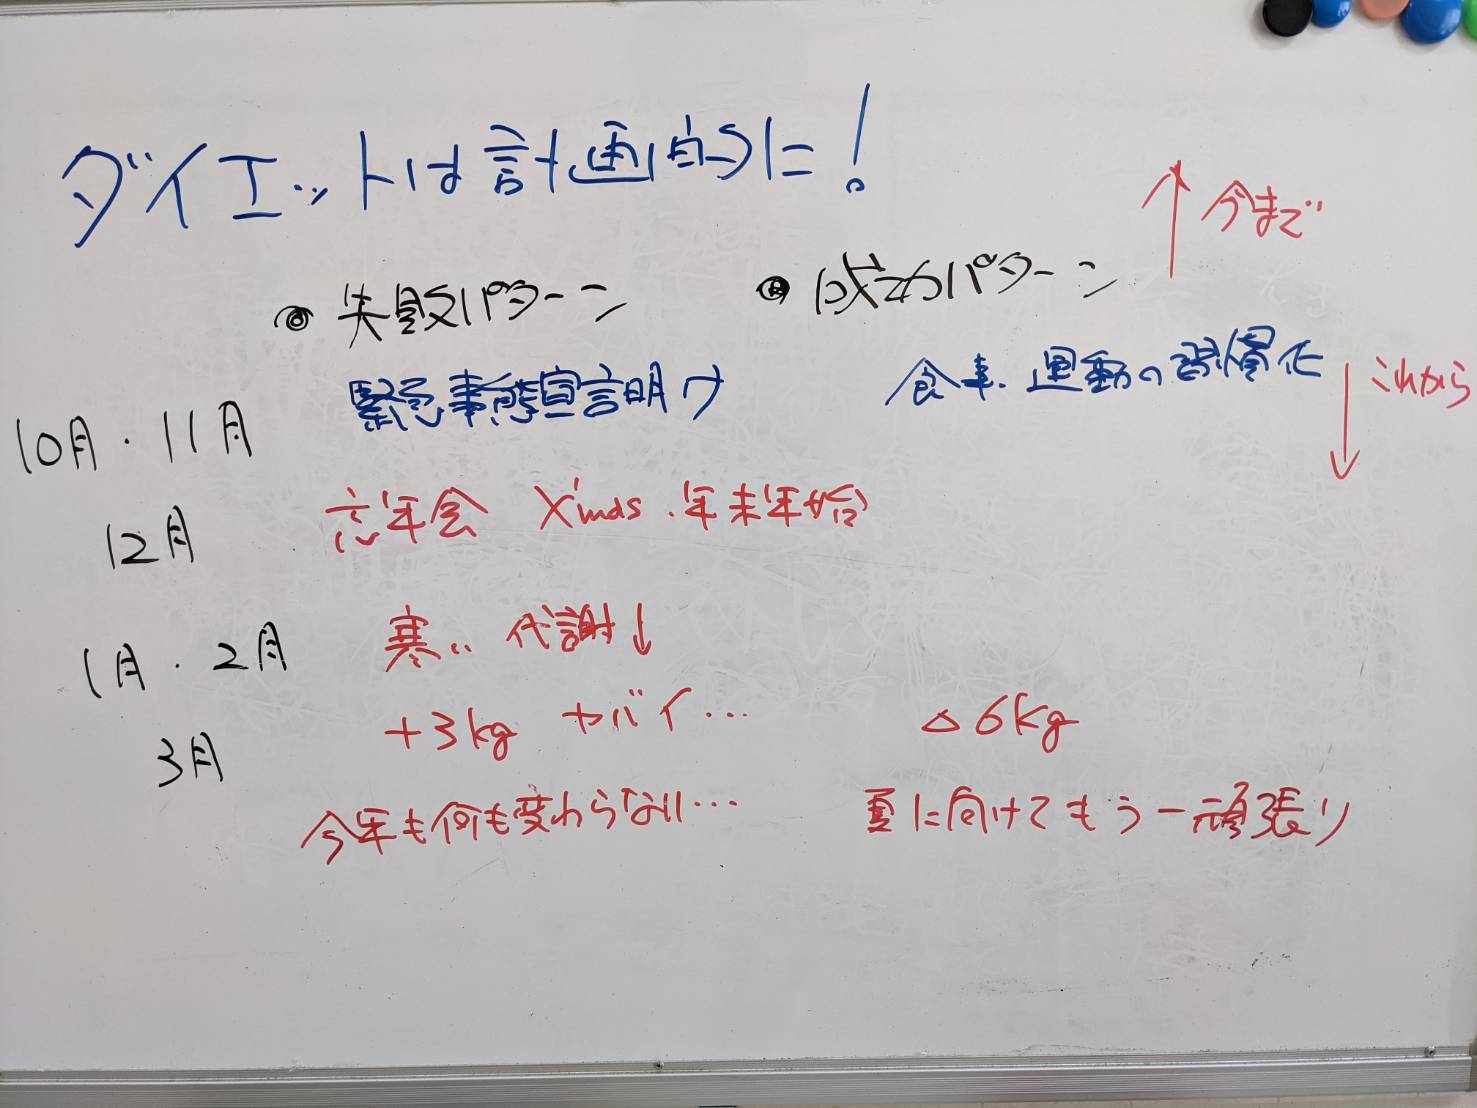 ダイエットは計画的に!
↑今まで
◎失敗パターン
◎成功パターン
緊急事態宣言明け
食事・運動の習慣化
↓これから
10月・11月
忘年会 X'mas・年末年始
12月
寒い 代謝↓
1月・2月
+3kg ヤバイ…
△6kg
3月
今年も何も変わらない…
夏に向けてもう一頑張り